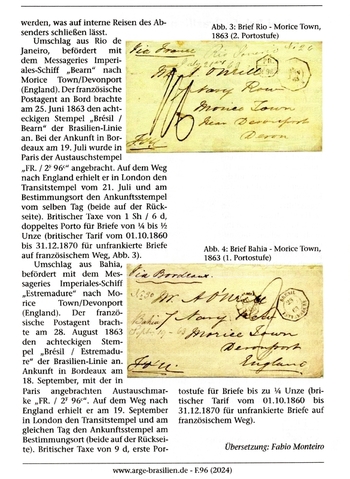 werden, was auf interne Reisen des Ab-
senders schließen lässt.
Umschlag aus Rio de
Janeiro, befördert mit
dem Messageries Imperi-
ales-Schiff „Bearn" nach
Morice Town/Devonport
(England). Der französische
Postagent an Bord brachte
am 25. Juni 1863 den acht-
eckigen Stempel „Brésil /
Bearn" der Brasilien-Linie
an. Bei der Ankunft in Bor-
deaux am 19. Juli wurde in
Paris der Austauschstempel
„FR. / 2ˢ 96ᶜ" angebracht. Auf dem Weg
nach England erhielt er in London den
Transitstempel vom 21. Juli und am
Bestimmungsort den Ankunftsstempel
vom selben Tag (beide auf der Rück-
seite). Britischer Taxe von 1 Sh / 6 d,
doppeltes Porto für Briefe von ¼ bis ½
Unze (britischer Tarif vom 01.10.1860
bis 31.12.1870 für unfrankierte Briefe
auf französischem Weg, Abb. 3).
Umschlag aus Bahia,
befördert mit dem Mes-
sageries Imperiales-Schiff
„Estremadure" nach Mo-
rice Town/Devonport
(England). Der franzö-
sische Postagent brach-
te am 28. August 1863
den achteckigen Stem-
pel „Brésil / Estremadu-
re" der Brasilien-Linie an.
Ankunft in Bordeaux am
18. September, mit der in
Paris angebrachten Austauschmar-
ke „FR. / 2ˢ 96ᶜ". Auf dem Weg nach
England erhielt er am 19. September
in London den Transitstempel und am
gleichen Tag den Ankunftsstempel am
Bestimmungsort (beide auf der Rücksei-
te). Britischer Taxe von 9 d, erste Por-
Abb. 3: Brief Rio - Morice Town,
1863 (2. Portostufe)
Via France
Navy Row
Morice Town
Near Devonport
Devon
Abb. 4: Brief Bahia - Morice Town,
1863 (1. Portostufe)
Via Bordeaux
Navy Row
Morice Town
Devonport
England
tostufe für Briefe bis zu ¼ Unze (bri-
tischer Tarif vom 01.10.1860 bis
31.12.1870 für unfrankierte Briefe auf
französischem Weg).
Übersetzung: Fabio Monteiro
www.arge-brasilien.de - F.96 (2024)